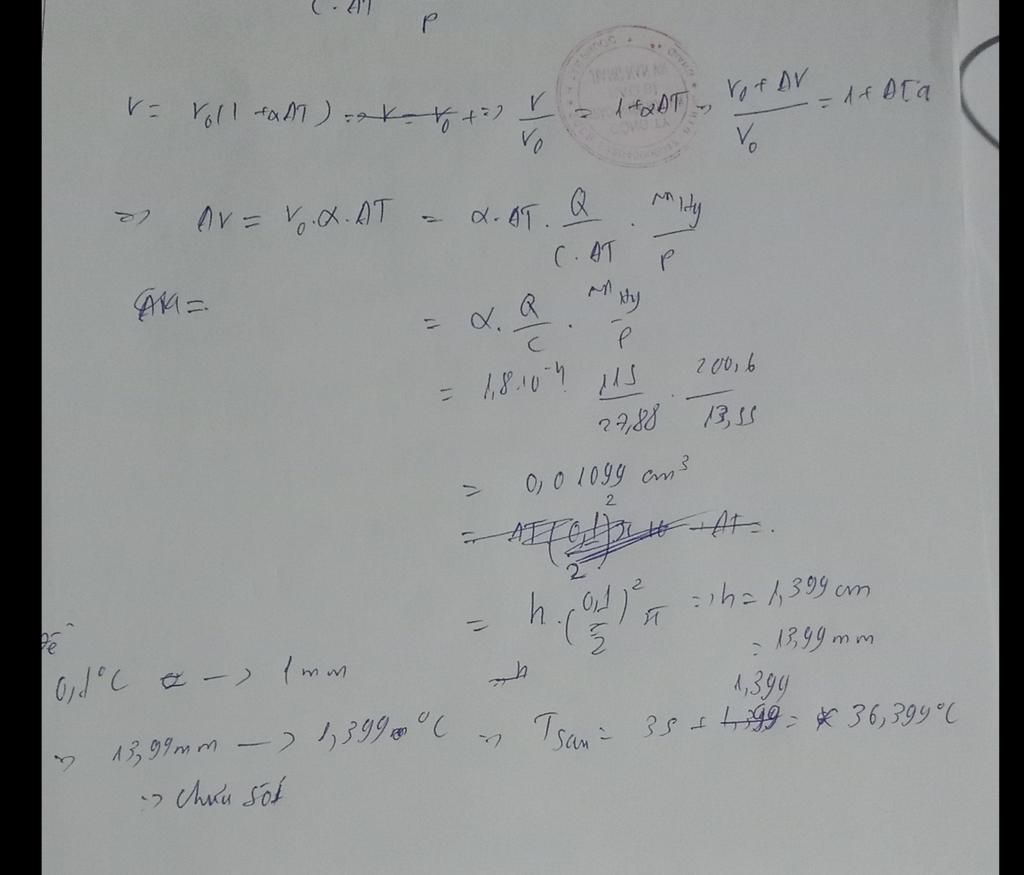 C.ΔT P
V = V₀(1 + αΔT) => V = V₀ + => V/V₀ = 1 + αΔT => (V₀ + ΔV)/V₀ = 1 + ΔTα
=> ΔV = V₀.α.ΔT = α.ΔT . Q/(C.ΔT) . mHg/P
= α . Q/C . mHg/P
= 1,8.10⁻⁴ . 115/27,88 . 200,6/13,55
= 0,01099 cm³
= h.(0,1/2)²π => h = 1,399 cm
= 13,99 mm
Để
0,1°C -> 1mm
=> 13,99mm -> 1,399°C => Tsau = 35 + 1,399 = 36,399°C
=> chưa sốt